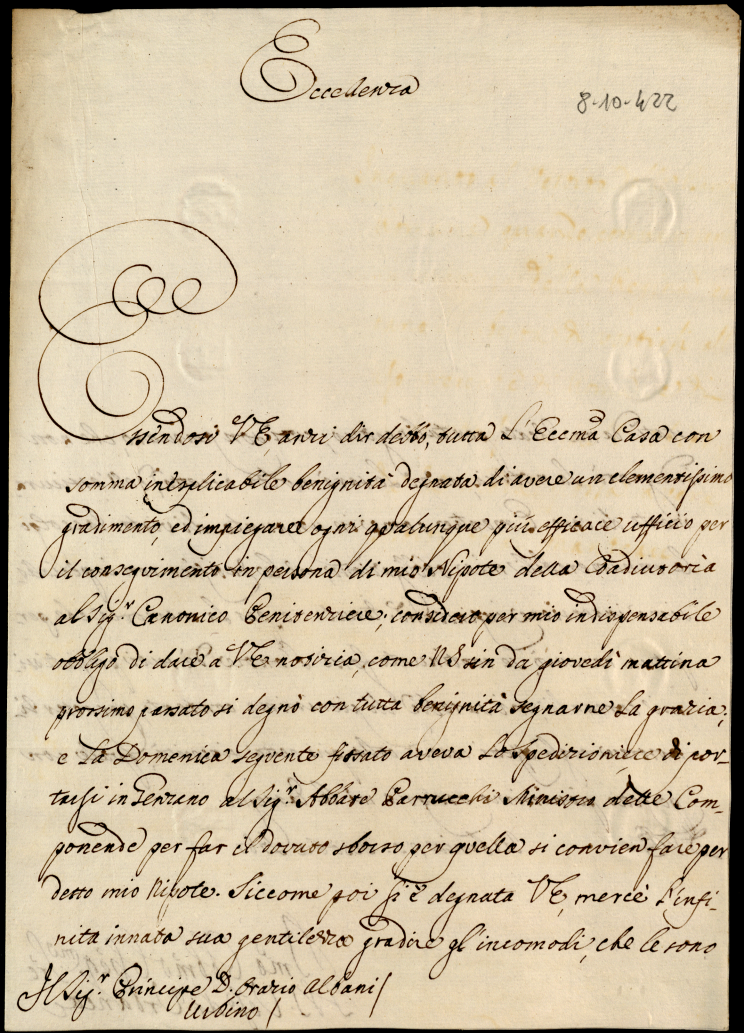 Eccellenza
8-10-422
Essendosi VE, anzi dir debbo, tutta L'Eccma Casa con
somma inesplicabile benignità degnata di avere un clementissimo
gradimento, ed impiegare ogni qualunque più efficace ufficio per
il conseguimento in persona di mio Nipote della Coadiutoria
al Sigr Canonico Penitenziere; considero per mio indispensabile
obbligo di dare a VE notizia, come NS sin da giovedì mattina
prossimo passato si degnò con tutta benignità segnarne la grazia;
e la Domenica seguente fissato aveva lo Spedizioniere di por-
tarsi in Genzano al Sigr Abbate Parrucchi Ministro delle Com-
ponende per far il dovuto sborso per quella si convien fare per
detto mio Nipote. Siccome poi si è degnata VE, mercè l'infi-
nita innata sua gentilezza gradire gl'incomodi, che le sono
Il Sigr Principe D. Orazio Albani /
Urbino /